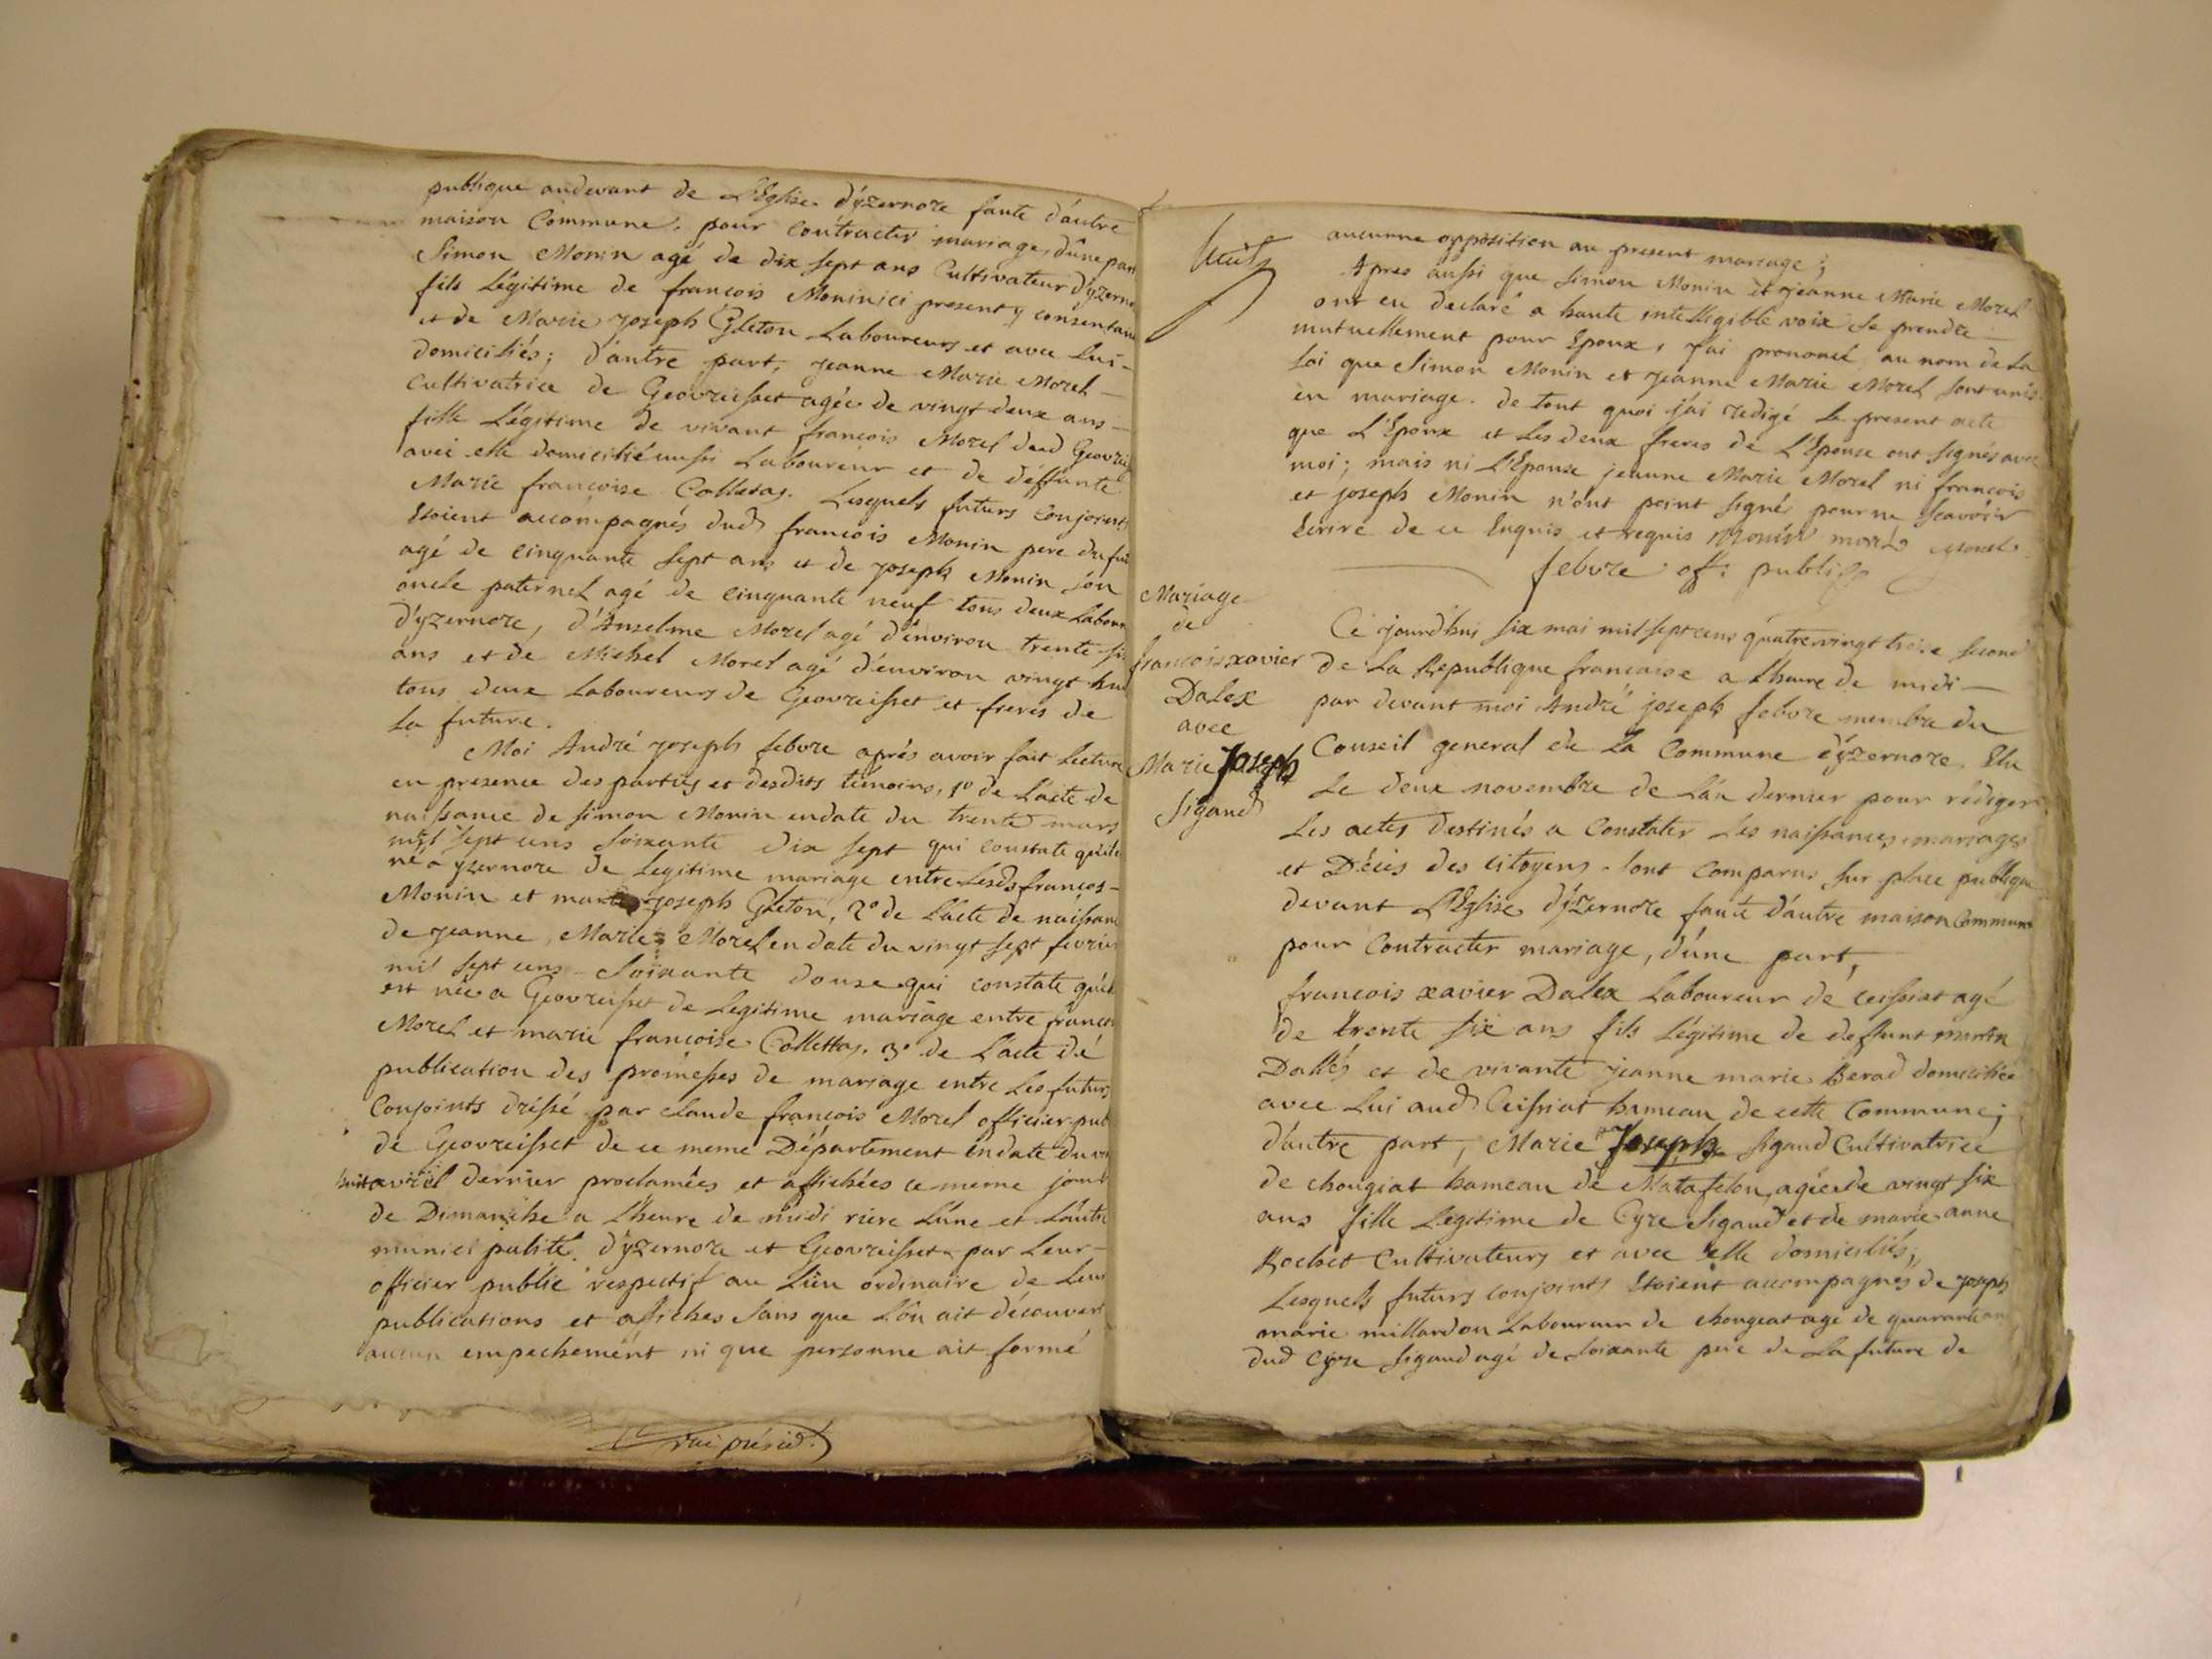 publique audevant de L'Eglise d'yzernore faute d'autre
maison Commune. pour contracter mariage, d'une part
Simon Monin agé de dix sept ans Cultivateur d'yzerno
fils Légitime de françois Monin ici present y consentant
et de Marie joseph Gleton Laboureurs et avec Lui-
domiciliés; d'autre part, jeanne Marie Morel-
Cultivatrice de Geovreisset agée de vingt deux ans-
fille Légitime de vivant françois Morel dud Geovrei
avec elle domicilié aussi Laboureur et de déffunte
Marie françoise Colletas. Lesquels futurs Conjoints
Etoient accompagnés dud françois Monin pere du fut
agé de cinquante sept ans et de joseph Monin son
oncle paternel agé de cinquante neuf tous deux Labour
d'yzernore, d'Anselme Morel agé d'environ trente si
ans et de Michel Morel agé d'environ vingt hui
tous deux Laboureurs de Geovreisset et freres de
la future.
Moi André joseph febvre aprés avoir fait Lecture
en presence des parties et desdits témoins, 1º de L'acte de
naissance de simon Monin en date du trente mars
mil sept cens soixante dix sept qui constate qu'il
né a yzernore de Legitime mariage entre Lesds françois-
Monin et marie joseph Gleton, 2º de L'acte de naissan
de jeanne Marie Morel en date du vingt sept fevrie
mil sept cens-Soixante douze qui constate qu'el
est née a Geovreisset de Legitime mariage entre franco
Morel et marie françoise Collettas. 3º de L'acte dé
publication des proméses de mariage entre Les futurs
Conjoints dréssé par claude françois Morel officier pub
de Geovreisset de ce meme Département en date du vi
huit avril dernier proclamées et affichées ce meme jour
de Dimanche a L'heure de midi riere L'une et L'autre
municipalité d'yzernore et Geovreisset par Leur-
officier public respectif au Lieu ordinaire de Leur
publications et affiches sans que L'on ait découver
aucun empechement ni que personne ait formé
aucunne opposition au present mariage;
Apres aussi que simon Monin et jeanne Marie Morel
ont eu declaré a haute intelligible voix se prendre-
mutuellement pour Epoux, j'ai prononcé au nom de La
Loi que Simon Monin et jeanne Marie Morel sont unis
en mariage. de tout quoi j'ai redigé Le present acte
que L'Epoux et Les deux freres de L'Epouse ont signés avec
moi; mais ni L'Epouse jeanne Marie Morel ni françois
et joseph Monin n'ont point signé pour ne sçavoir
Ecrire de ce Enquis et requis Monin morel Morel
febvre off: public
Mariage
de
francois xavier
Dalex
avec
Marie Joseph
Sigaud
Ce jourd'hui six mai mil sept cens quatrevingt treize second
de La Republique françoise a L'heure de midi-
par devant moi André joseph febvre membre du
Conseil general de La Commune d'yzernore Elu
Le deux novembre de L'an dernier pour rédiger
Les actes destinés a Constater Les naissances, mariages
et Décès des citoyens. sont comparus sur place publique
devant L'Eglise d'yzernore faute d'autre maison Commune
pour Contracter mariage, d'une part,
francois xavier Dalex Laboureur de ceissiat agé
de trente six ans fils Légitime de deffunt martin
Dallés et de vivante jeanne marie Berad domiciliée
avec Lui aud Ceissiat hameau de cette Commune;
d'autre part, Marie Joseph Sigaud Cultivatrice
de chougiat hameau de Matafelon, agée de vingt six
ans fille Legitime de Cyre Sigaud et de marie anne
Rochet Cultivateurs et avec elle domiciliés,
Lesquels futurs conjoints Etoient accompagnés de joseph
marie millardon Laboureur de chougeat agé de quarante an
dud Cyre sigaud agé de soixante pere de La future de